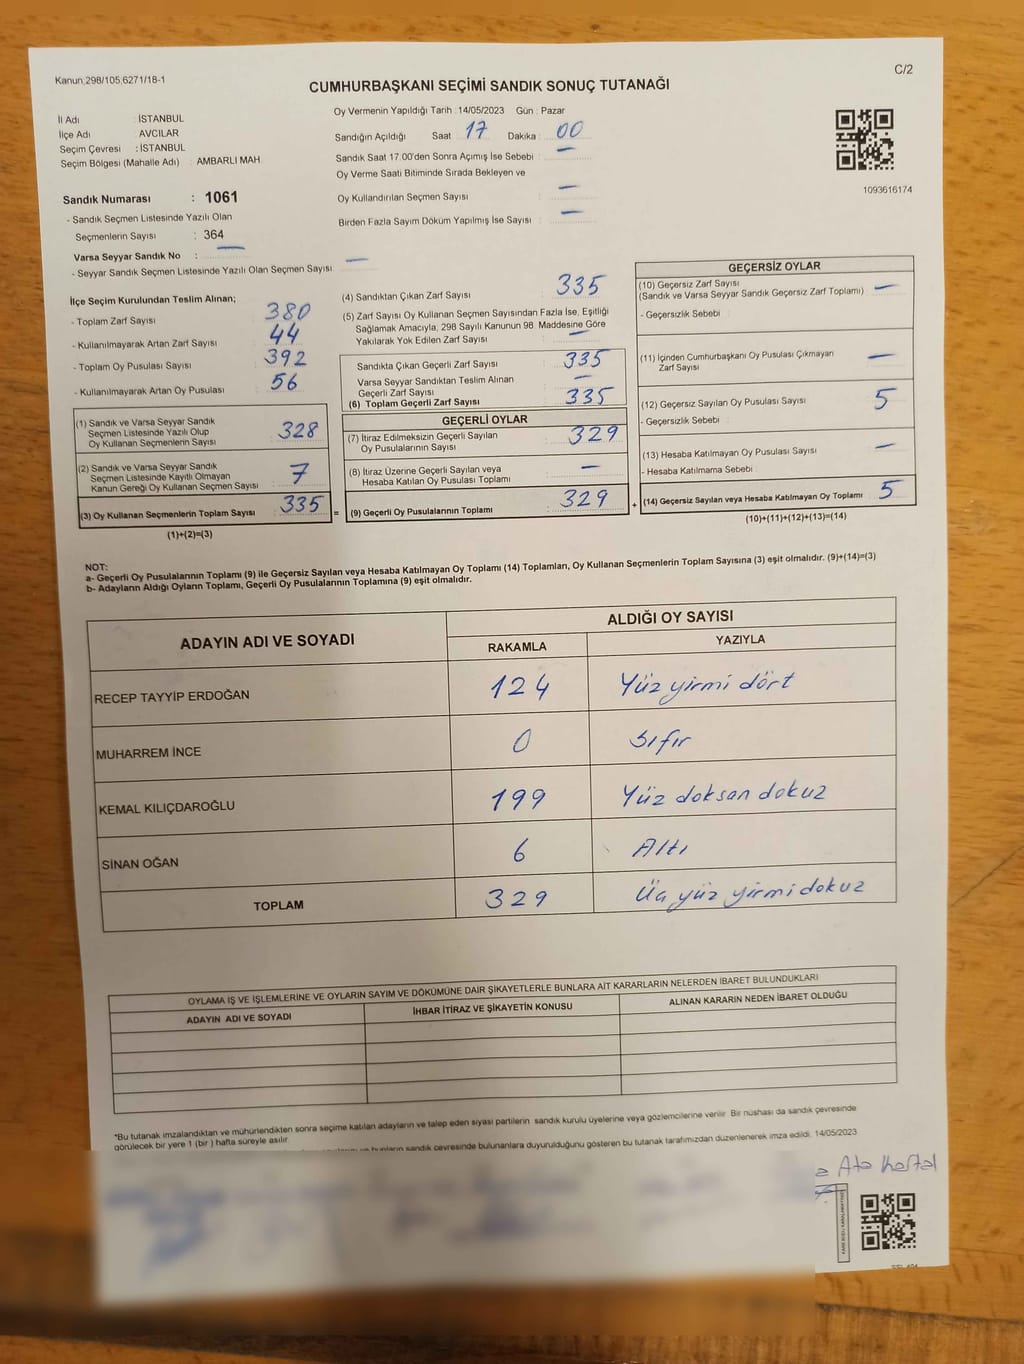 Kanun;298/105,6271/18-1
C/2
CUMHURBAŞKANI SEÇİMİ SANDIK SONUÇ TUTANAĞI
İl Adı : İSTANBUL
İlçe Adı : AVCILAR
Seçim Çevresi : İSTANBUL
Seçim Bölgesi (Mahalle Adı) : AMBARLI MAH.
Oy Vermenin Yapıldığı Tarih : 14/05/2023 Gün : Pazar
Sandığın Açıldığı Saat : 17 Dakika : 00
Sandık Saat 17.00'den Sonra Açımış İse Sebebi : —
Oy Verme Saati Bitiminde Sırada Bekleyen ve
Oy Kullandırılan Seçmen Sayısı : —
Birden Fazla Sayım Döküm Yapılmış İse Sayısı : —
1093616174
Sandık Numarası : 1061
- Sandık Seçmen Listesinde Yazılı Olan
Seçmenlerin Sayısı : 364
Varsa Seyyar Sandık No : —
- Seyyar Sandık Seçmen Listesinde Yazılı Olan Seçmen Sayısı : —
İlçe Seçim Kurulundan Teslim Alınan;
- Toplam Zarf Sayısı : 380
- Kullanılmayarak Artan Zarf Sayısı : 44
- Toplam Oy Pusulası Sayısı : 392
- Kullanılmayarak Artan Oy Pusulası : 56
(1) Sandık ve Varsa Seyyar Sandık
Seçmen Listesinde Yazılı Olup
Oy Kullanan Seçmenlerin Sayısı : 328
(2) Sandık ve Varsa Seyyar Sandık
Seçmen Listesinde Kayıtlı Olmayan
Kanun Gereği Oy Kullanan Seçmen Sayısı : 7
(3) Oy Kullanan Seçmenlerin Toplam Sayısı : 335 =
(1)+(2)=(3)
(4) Sandıktan Çıkan Zarf Sayısı : 335
(5) Zarf Sayısı Oy Kullanan Seçmen Sayısından Fazla İse, Eşitliği
Sağlamak Amacıyla, 298 Sayılı Kanunun 98. Maddesine Göre
Yakılarak Yok Edilen Zarf Sayısı : —
Sandıkta Çıkan Geçerli Zarf Sayısı : 335
Varsa Seyyar Sandıktan Teslim Alınan
Geçerli Zarf Sayısı : —
(6) Toplam Geçerli Zarf Sayısı : 335
GEÇERLİ OYLAR
(7) İtiraz Edilmeksizin Geçerli Sayılan
Oy Pusulalarının Sayısı : 329
(8) İtiraz Üzerine Geçerli Sayılan veya
Hesaba Katılan Oy Pusulası Toplamı : —
(9) Geçerli Oy Pusulalarının Toplamı : 329 +
GEÇERSİZ OYLAR
(10) Geçersiz Zarf Sayısı : —
(Sandık ve Varsa Seyyar Sandık Geçersiz Zarf Toplamı)
- Geçersizlik Sebebi :
(11) İçinden Cumhurbaşkanı Oy Pusulası Çıkmayan
Zarf Sayısı : —
(12) Geçersiz Sayılan Oy Pusulası Sayısı : 5
- Geçersizlik Sebebi :
(13) Hesaba Katılmayan Oy Pusulası Sayısı : —
- Hesaba Katılmama Sebebi :
(14) Geçersiz Sayılan veya Hesaba Katılmayan Oy Toplamı : 5
(10)+(11)+(12)+(13)=(14)
NOT:
a- Geçerli Oy Pusulalarının Toplamı (9) ile Geçersiz Sayılan veya Hesaba Katılmayan Oy Toplamı (14) Toplamları, Oy Kullanan Seçmenlerin Toplam Sayısına (3) eşit olmalıdır. (9)+(14)=(3)
b- Adayların Aldığı Oyların Toplamı, Geçerli Oy Pusulalarının Toplamına (9) eşit olmalıdır.
ADAYIN ADI VE SOYADI
ALDIĞI OY SAYISI
RAKAMLA YAZIYLA
RECEP TAYYİP ERDOĞAN 124 Yüz yirmi dört
MUHARREM İNCE 0 Sıfır
KEMAL KILIÇDAROĞLU 199 Yüz doksan dokuz
SİNAN OĞAN 6 Altı
TOPLAM 329 Üç yüz yirmi dokuz
OYLAMA İŞ VE İŞLEMLERİNE VE OYLARIN SAYIM VE DÖKÜMÜNE DAİR ŞİKAYETLERLE BUNLARA AİT KARARLARIN NELERDEN İBARET BULUNDUKLARI
ADAYIN ADI VE SOYADI İHBAR İTİRAZ VE ŞİKAYETİN KONUSU ALINAN KARARIN NEDEN İBARET OLDUĞU
*Bu tutanak imzalandıktan ve mühürlendikten sonra seçime katılan adayların ve talep eden siyasi partilerin sandık kurulu üyelerine veya gözlemcilerine verilir. Bir nüshası da sandık çevresinde
görülecek bir yere 1 (bir) hafta süreyle asılır.
bunların sandık çevresinde bulunanlara duyurulduğunu gösteren bu tutanak tarafımızdan düzenlenerek imza edildi. 14/05/2023
Ata